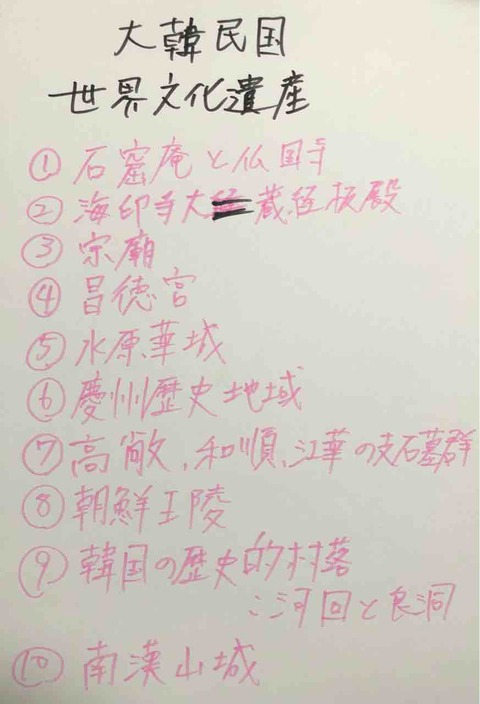 大韓民国
世界文化遺産
① 石窟庵と仏国寺
② 海印寺大蔵経板殿
③ 宗廟
④ 昌徳宮
⑤ 水原華城
⑥ 慶州歴史地域
⑦ 高敞、和順、江華の支石墓群
⑧ 朝鮮王陵
⑨ 韓国の歴史的村落
:河回と良洞
⑩ 南漢山城